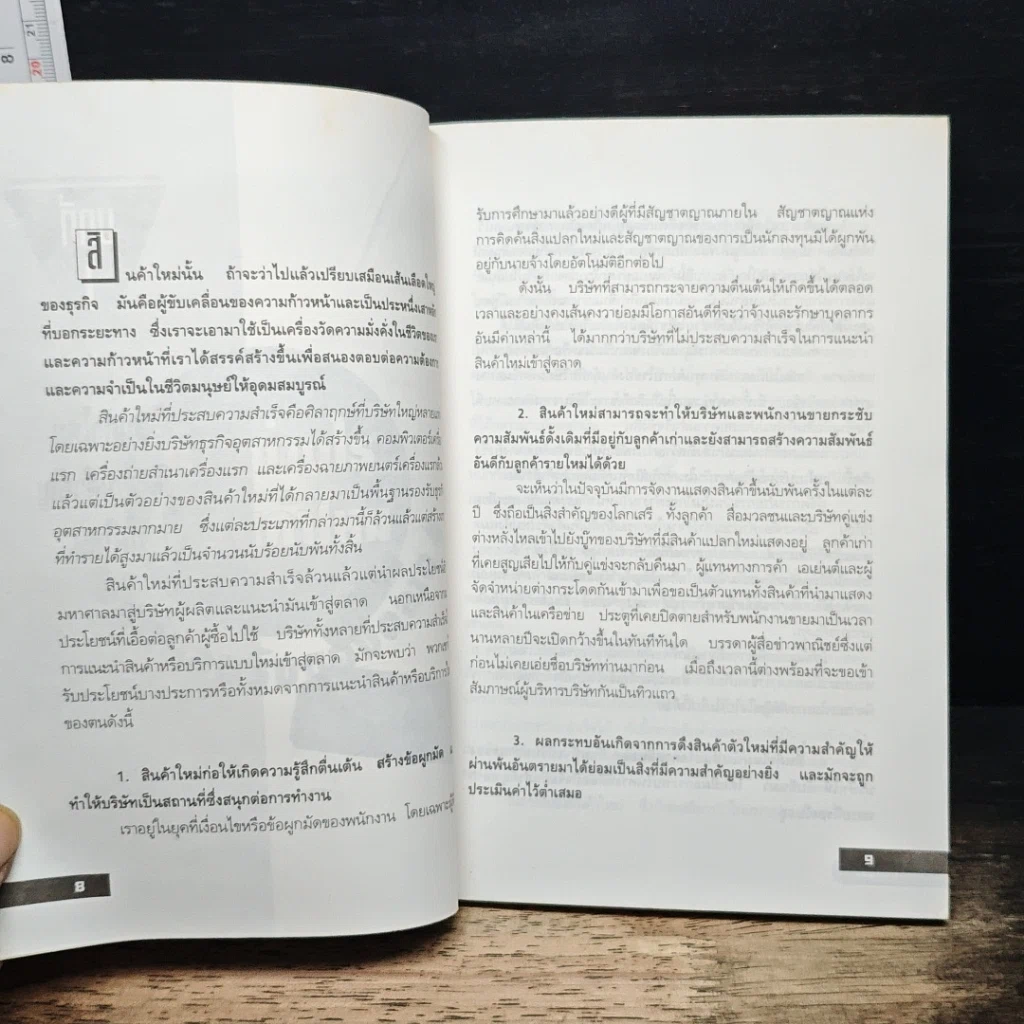 สินค้าใหม่นั้น ถ้าจะว่าไปแล้วเปรียบเสมือนเส้นเลือดใหญ่
ของธุรกิจ มันคือผู้ขับเคลื่อนของความก้าวหน้าและเป็นประหนึ่งเสาหลัก
ที่บอกระยะทาง ซึ่งเราจะเอามาใช้เป็นเครื่องวัดความมั่งคั่งในชีวิตของเรา
และความก้าวหน้าที่เราได้สรรค์สร้างขึ้นเพื่อสนองตอบต่อความต้องการ
และความจำเป็นในชีวิตมนุษย์ให้อุดมสมบูรณ์
สินค้าใหม่ที่ประสบความสำเร็จคือศิลาฤกษ์ที่บริษัทใหญ่หลาย
โดยเฉพาะอย่างยิ่งบริษัทธุรกิจอุตสาหกรรมได้สร้างขึ้น คอมพิวเตอร์เครื่อง
แรก เครื่องถ่ายสำเนาเครื่องแรก และเครื่องฉายภาพยนตร์เครื่องแรก
แล้วแต่เป็นตัวอย่างของสินค้าใหม่ที่ได้กลายมาเป็นพื้นฐานรองรับธุรกิจ
อุตสาหกรรมมากมาย ซึ่งแต่ละประเภทที่กล่าวมานี้ก็ล้วนแล้วแต่สร้าง
ที่ทำรายได้สูงมาแล้วเป็นจำนวนนับร้อยนับพันทั้งสิ้น
สินค้าใหม่ที่ประสบความสำเร็จล้วนแล้วแต่นำผลประโยชน์
มหาศาลมาสู่บริษัทผู้ผลิตและแนะนำมันเข้าสู่ตลาด นอกเหนือจาก
ประโยชน์ที่เอื้อต่อลูกค้าผู้ซื้อไปใช้ บริษัททั้งหลายที่ประสบความสำเร็จ
การแนะนำสินค้าหรือบริการแบบใหม่เข้าสู่ตลาด มักจะพบว่า พวกเขา
รับประโยชน์บางประการหรือทั้งหมดจากการแนะนำสินค้าหรือบริการ
ของตนดังนี้
1. สินค้าใหม่ก่อให้เกิดความรู้สึกตื่นเต้น สร้างข้อผูกมัด
ทำให้บริษัทเป็นสถานที่ซึ่งสนุกต่อการทำงาน
เราอยู่ในยุคที่เงื่อนไขหรือข้อผูกมัดของพนักงาน โดยเฉพาะ
8
รับการศึกษามาแล้วอย่างดีผู้ที่มีสัญชาตญาณภายใน สัญชาตญาณแห่ง
การคิดค้นสิ่งแปลกใหม่และสัญชาตญาณของการเป็นนักลงทุนมิได้ผูกพัน
อยู่กับนายจ้างโดยอัตโนมัติอีกต่อไป
ดังนั้น บริษัทที่สามารถกระจายความตื่นเต้นให้เกิดขึ้นได้ตลอด
เวลาและอย่างคงเส้นคงวาย่อมมีโอกาสอันดีที่จะว่าจ้างและรักษาบุคลากร
อันมีค่าเหล่านี้ ได้มากกว่าบริษัทที่ไม่ประสบความสำเร็จในการแนะนำ
สินค้าใหม่เข้าสู่ตลาด
2. สินค้าใหม่สามารถจะทำให้บริษัทและพนักงานขายกระชับ
ความสัมพันธ์ดั้งเดิมที่มีอยู่กับลูกค้าเก่าและยังสามารถสร้างความสัมพันธ์
อันดีกับลูกค้ารายใหม่ได้ด้วย
จะเห็นว่าในปัจจุบันมีการจัดงานแสดงสินค้าขึ้นนับพันครั้งในแต่ละ
ปี ซึ่งถือเป็นสิ่งสำคัญของโลกเสรี ทั้งลูกค้า สื่อมวลชนและบริษัทคู่แข่ง
ต่างหลั่งไหลเข้าไปยังบู๊ทของบริษัทที่มีสินค้าแปลกใหม่แสดงอยู่ ลูกค้าเก่า
ที่เคยสูญเสียไปให้กับคู่แข่งจะกลับคืนมา ผู้แทนทางการค้า เอเย่นต์และผู้
จัดจำหน่ายต่างกระโดดกันเข้ามาเพื่อขอเป็นตัวแทนทั้งสินค้าที่นำมาแสดง
และสินค้าในเครือข่าย ประตูที่เคยปิดตายสำหรับพนักงานขายมาเป็นเวลา
นานหลายปีจะเปิดกว้างขึ้นในทันทีทันใด บรรดาผู้สื่อข่าวพาณิชย์ซึ่งแต่
ก่อนไม่เคยเอ่ยชื่อบริษัทท่านมาก่อน เมื่อถึงเวลานี้ต่างพร้อมที่จะขอเข้า
สัมภาษณ์ผู้บริหารบริษัทกันเป็นทิวแถว
3. ผลกระทบอันเกิดจากการดึงสินค้าตัวใหม่ที่มีความสำคัญให้
ผ่านพ้นอันตรายมาได้ย่อมเป็นสิ่งที่มีความสำคัญอย่างยิ่ง และมักจะถูก
ประเมินค่าไว้ต่ำเสมอ
9